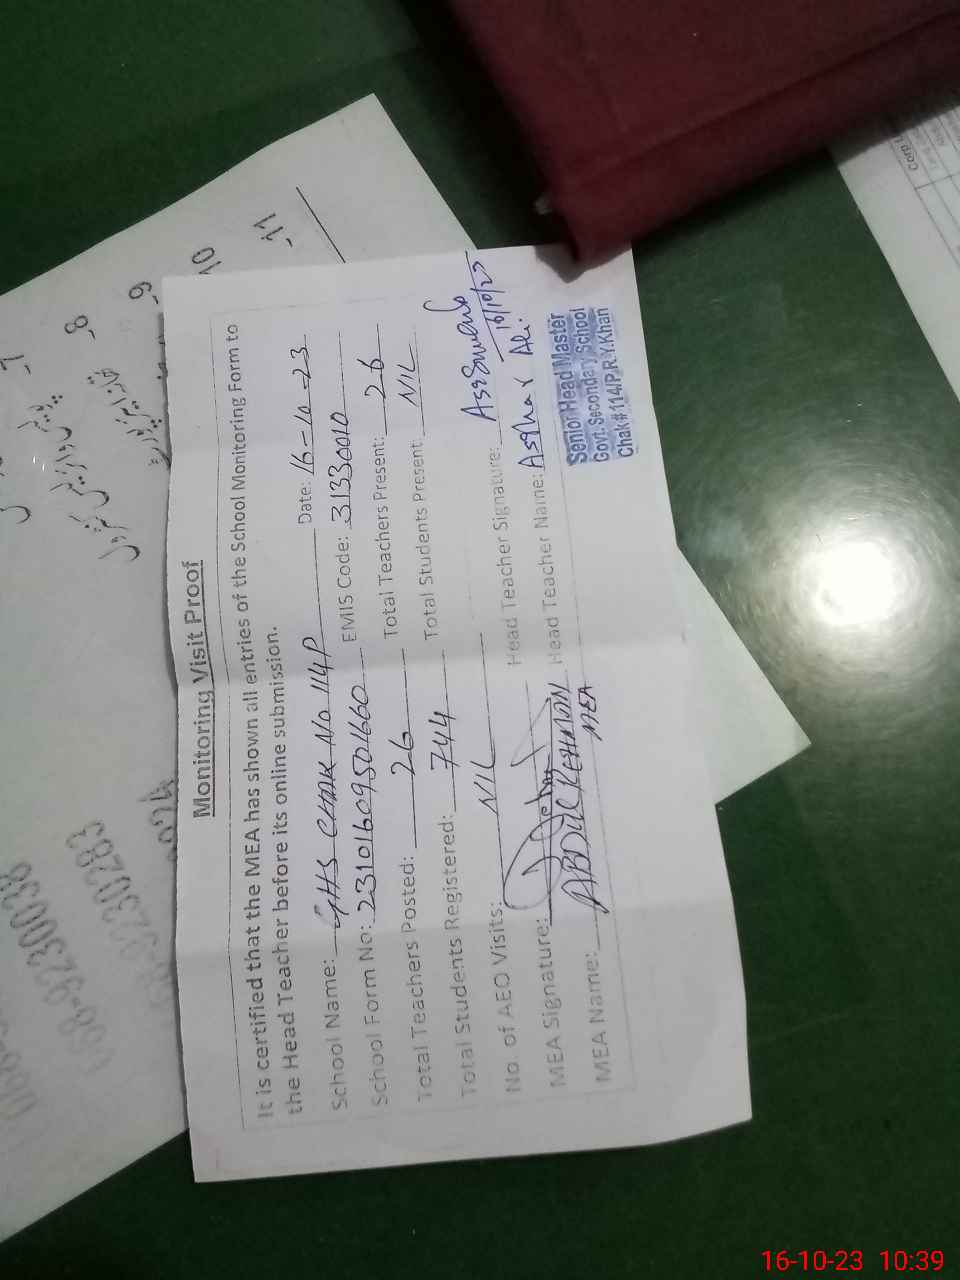 Monitoring Visit Proof
It is certified that the MEA has shown all entries of the School Monitoring Form to
the Head Teacher before its online submission.
School Name: GHS CHAK No 114P Date: 16-10-23
School Form No: 23101609501660 EMIS Code: 31330010
Total Teachers Posted: 26 Total Teachers Present: 26
Total Students Registered: 744 Total Students Present: NIL
No. of AEO Visits: NIL
MEA Signature: Head Teacher Signature: 16/10/23
MEA Name: ABDUL REHMAN Head Teacher Name: Asghar Ali
MEA
Senior Head Master
Govt. Secondary School
Chak#114/P.R.Y.Khan
-7
-8
-9
10
-11
068-9230038
068-9230283
16-10-23 10:39